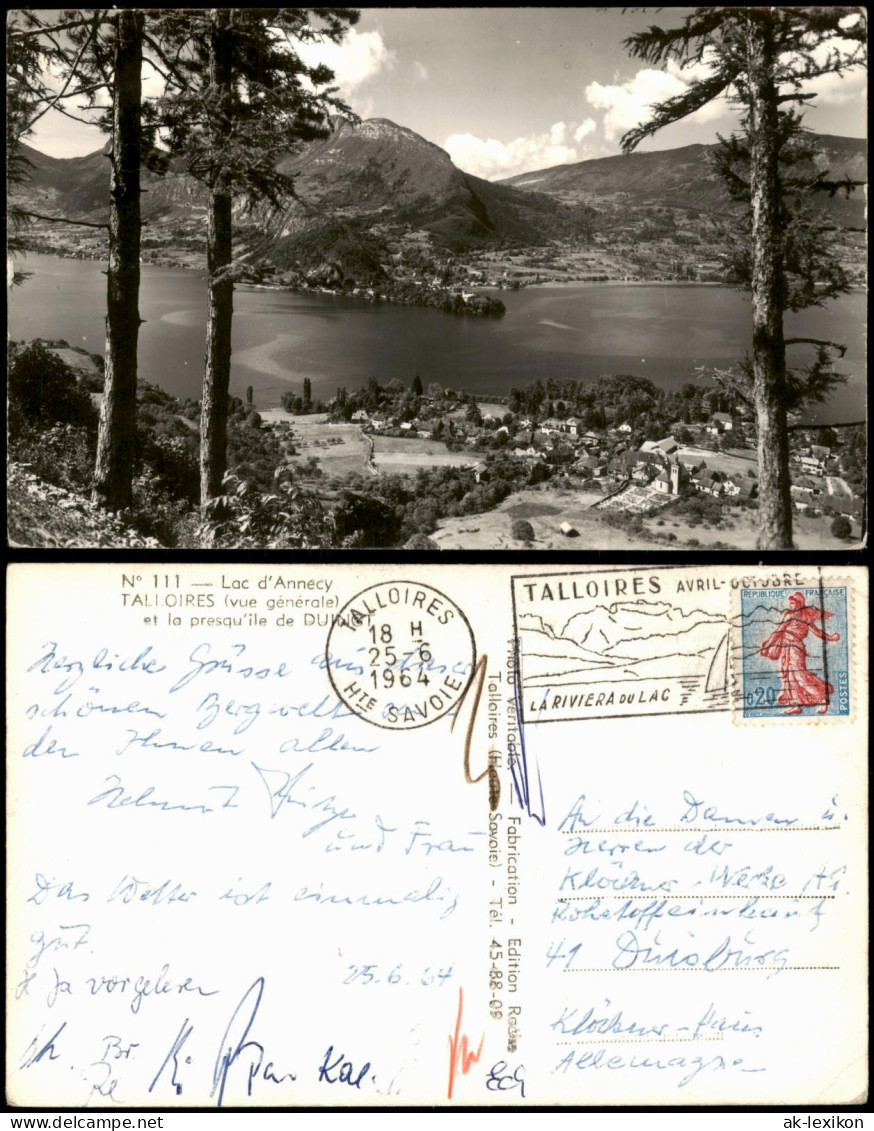 N° 111 — Lac d'Annecy
TALLOIRES (vue générale)
et la presqu'île de DUINGT
TALLOIRES
18 H
25-6
1964
HTE SAVOIE
TALLOIRES AVRIL-OCTOBRE
LA RIVIERA DU LAC
REPUBLIQUE FRANÇAISE
0,20
POSTES
Herzliche Grüsse aus dieser
schönen Bergwelt
den Ihnen allen
Helmut
und Frau
Das Wetter ist einmalig
gut.
25.6.64
Photo véritable. — Fabrication - Edition
Talloires (Haute Savoie) - Tél. 45-88-09
An die Damen u.
Herren der
Klöckner-Werke AG.
Rohstoffeinkauf
41 Duisburg
Klöckner-Haus
Allemagne
ak-lexikon.de